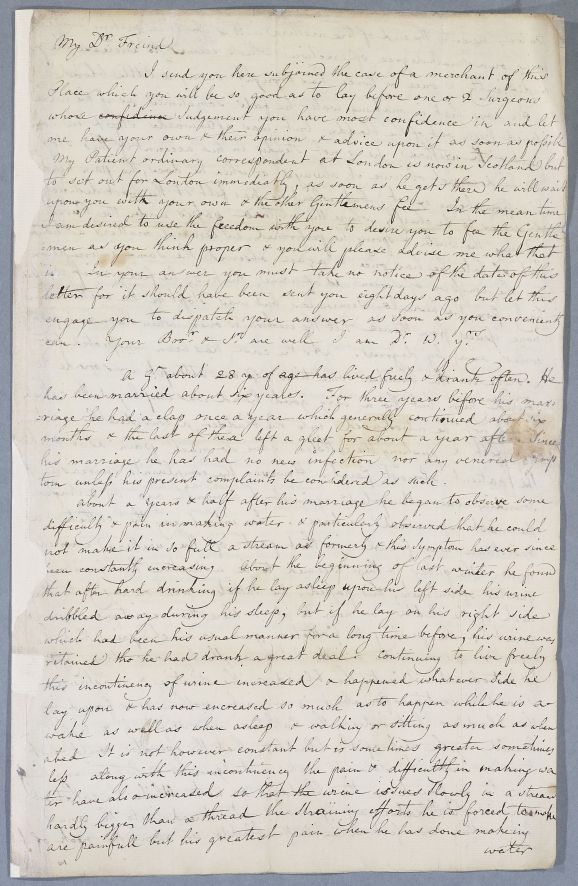 My Dr Freind
I send you here subjoined the case of a merchant of this
Place which you will be so good as to lay before one or 2 Surgeons
whose confidence Judgement you have most confidence in and let
me have your own & their opinion & advice upon it as soon as possible
My Patient ordinary correspondent at London is now in Scotland but
to set out for London immediatly, as soon as he gets there he will wait
upon you with your own & the other Gentlemens fee In the mean time
I am desired to use the freedom with you to desire you to fee the Gentle
men as you think proper & you will please advise me what that
is In your answer you must take no notice of the date of this
letter for it should have been sent you eight days ago but let this
engage you to dispatch your answer as soon as you conveniently
can. Your Bror & Sr are well I am Dr W. Yrs
A Gn about 28 of age has lived freely & drank often. He
has been married about six years. For three years before his mar
riage he had a clap once a year which generally continued about six
months & the last of these left a gleet for about a year after Since
his marriage he has had no new infection nor any venereal symp
tom unless his present complaints be considered as such.
about a Years & half after his marriage he began to observe some
difficulty & pain in making water & particularly observed that he could
not make it in so full a stream as formerly & this symptom has ever since
been constantly increasing About the beginning of last winter he found
that after hard drinking if he lay asleep upon his left side his urine
dribbled away during his sleep, but if he lay on his right side
which had been his usual manner for a long time before, his urine was
retained tho he had drank a great deal. continuing to live freely
this incontinency of urine increased & happened whatever side he
lay upon & has now encreased so much as to happen while he is a
wake as well as when asleep & walking or sitting as much as when
abed It is not however constant but is sometimes greater sometimes
less along with this incontinency the pain & difficulty in making wa
ter have also increased so that the urine issues slowly in a stream
hardly bigger than a thread the straining efforts he is forced to make
are painfull but his greatest pain when he has done making
water